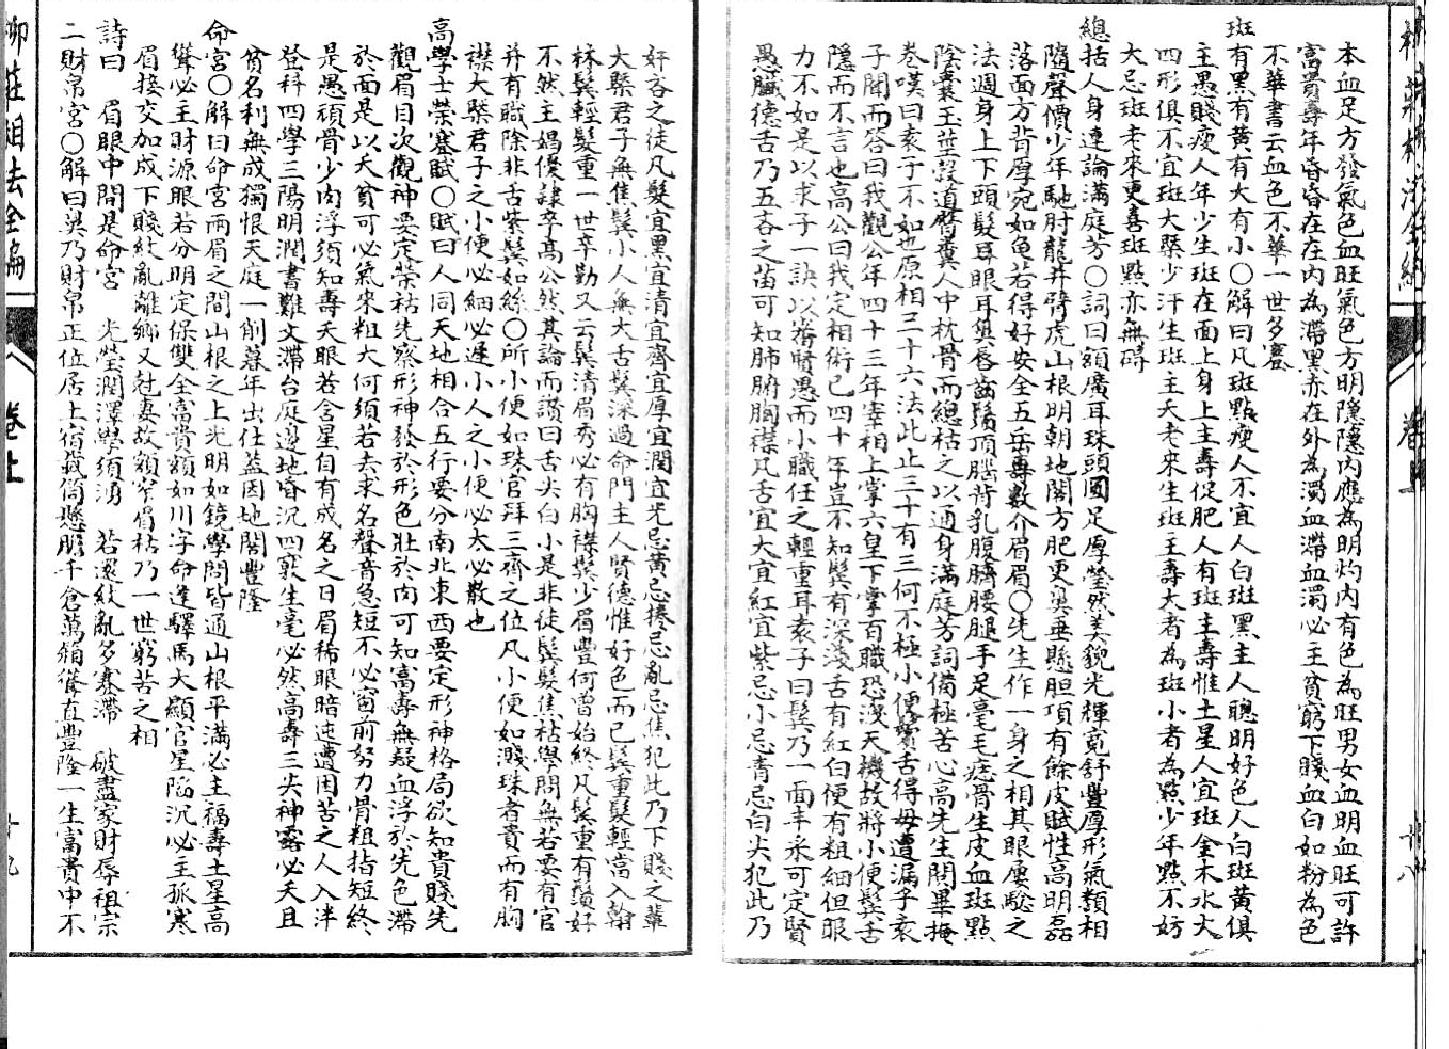 本血足方發氣色血旺氣色方明隱隱內應為明灼內有色為旺男女血明血旺可許
富貴壽年昏昏在在內為滯黑赤在外為濁血滯血濁必主貧窮下賤血白如粉為色
不華書云血色不華一世多蹇
斑有黑有黃有大有小〇解曰凡斑點瘦人不宜人白斑黑主人聰明好色人白斑黃俱
主愚賤瘦人年少生斑在面上身上主壽促肥人有斑主壽惟土星人宜斑金木水火
四形俱不宜斑大槩少汗生斑主夭老來生斑主壽大者為斑小者為點少年點不妨
大忌斑老來更喜斑點亦無碍
總括人身達論滿庭芳〇詞曰額廣耳珠頭圓足厚瑩然美貌光輝寬舒豐厚形氣類相
隨聲價少年馳肘龍井臂虎山根明朝地閣方肥更與垂懸胆項有餘皮賦性高明磊
落面方背厚宛如龜若得好安全五岳專數介眉眉〇先生作一身之相其眼屢驗之
法週身上下頭髮耳眼耳鼻唇齒鬚頂腦背乳腹臍腰腿手足毫毛痣骨生皮血斑點
陰囊玉莖穀道臀糞人中枕骨而總枯之以通身滿庭芳詞備極苦心高先生開畢掩
卷嘆曰袁子不如也原相三十六法此止三十有三何不極小便鬢舌得毋遺漏乎袁
子聞而答曰我觀公年四十三年宰相上掌六皇下掌百職恐洩天機故將小便鬢舌
隱而不言也高公曰我定相術已四十年豈不知鬢有深淺舌有紅白便有粗細但眼
力不如是以求子一訣以辨賢愚而小職任之輕重耳袁子曰鬢乃一面丰采可定賢
愚臟德舌乃五吝之苗可知肺腑胸襟凡舌宜大宜紅宜紫忌小忌青忌白尖犯此乃
奸吝之徒凡髮宜黑宜清宜齊宜厚宜潤宜光忌黃忌捲忌亂忌焦犯此乃下賤之輩
大槩君子無焦鬢小人無大舌鬢深過命門主人賢德惟好色而已鬢重髮輕當入翰
林鬢輕髮重一世辛勤又云鬢清眉秀必有胸襟鬢少眉豐何曾始終凡鬢重有鬚好
不然主娼優隸卒高公然其論而讚曰舌尖白小是非徒鬢髮焦枯學問無若要有官
并有職除非舌紫鬢如絲〇所小便如珠官拜三齊之位凡小便如濺珠者貴而有胸
襟大槩君子之小便必細必遲小人之小便必大必散也
高學士榮蹇賦〇賦曰人同天地相合五行要分南北東西要定形神格局欲知貴賤先
觀眉目次觀神要定榮枯先察形神發於形色壯於肉可知富壽無疑血浮於光色滯
於面是以夭貧可必氣來粗大何須若去求名聲音急短不必窗前努力骨粗指短終
是愚頑骨少肉浮須知壽夭眼若含星自有成名之日眉稀眼暗迍遭困苦之人入泮
登科四學三陽明潤書難文滯台庭邊地昏沉四寨生毫必然高壽三尖神露必夭且
貧名利無成獨恨天庭一削暮年出仕益因地閣豐隆
命宮〇解曰命宮兩眉之間山根之上光明如鏡學問皆通山根平滿必主福壽土星高
聳必主財源眼若分明定保雙全富貴額如川字命逢驛馬大顯官星陷沉必主孤寒
眉接交加成下賤紋亂離鄉又尅妻故額窄眉枯乃一世窮苦之相
詩曰　眉眼中間是命宮　光瑩潤澤學須湧　若還紋亂多寒滯　破盡家財辱祖宗
二財帛宮〇解曰鼻乃財帛正位居土宿截筒懸膽千倉萬箱聳直豐隆一生富貴中不
柳莊相法全編
卷上
十九
卷上
十八